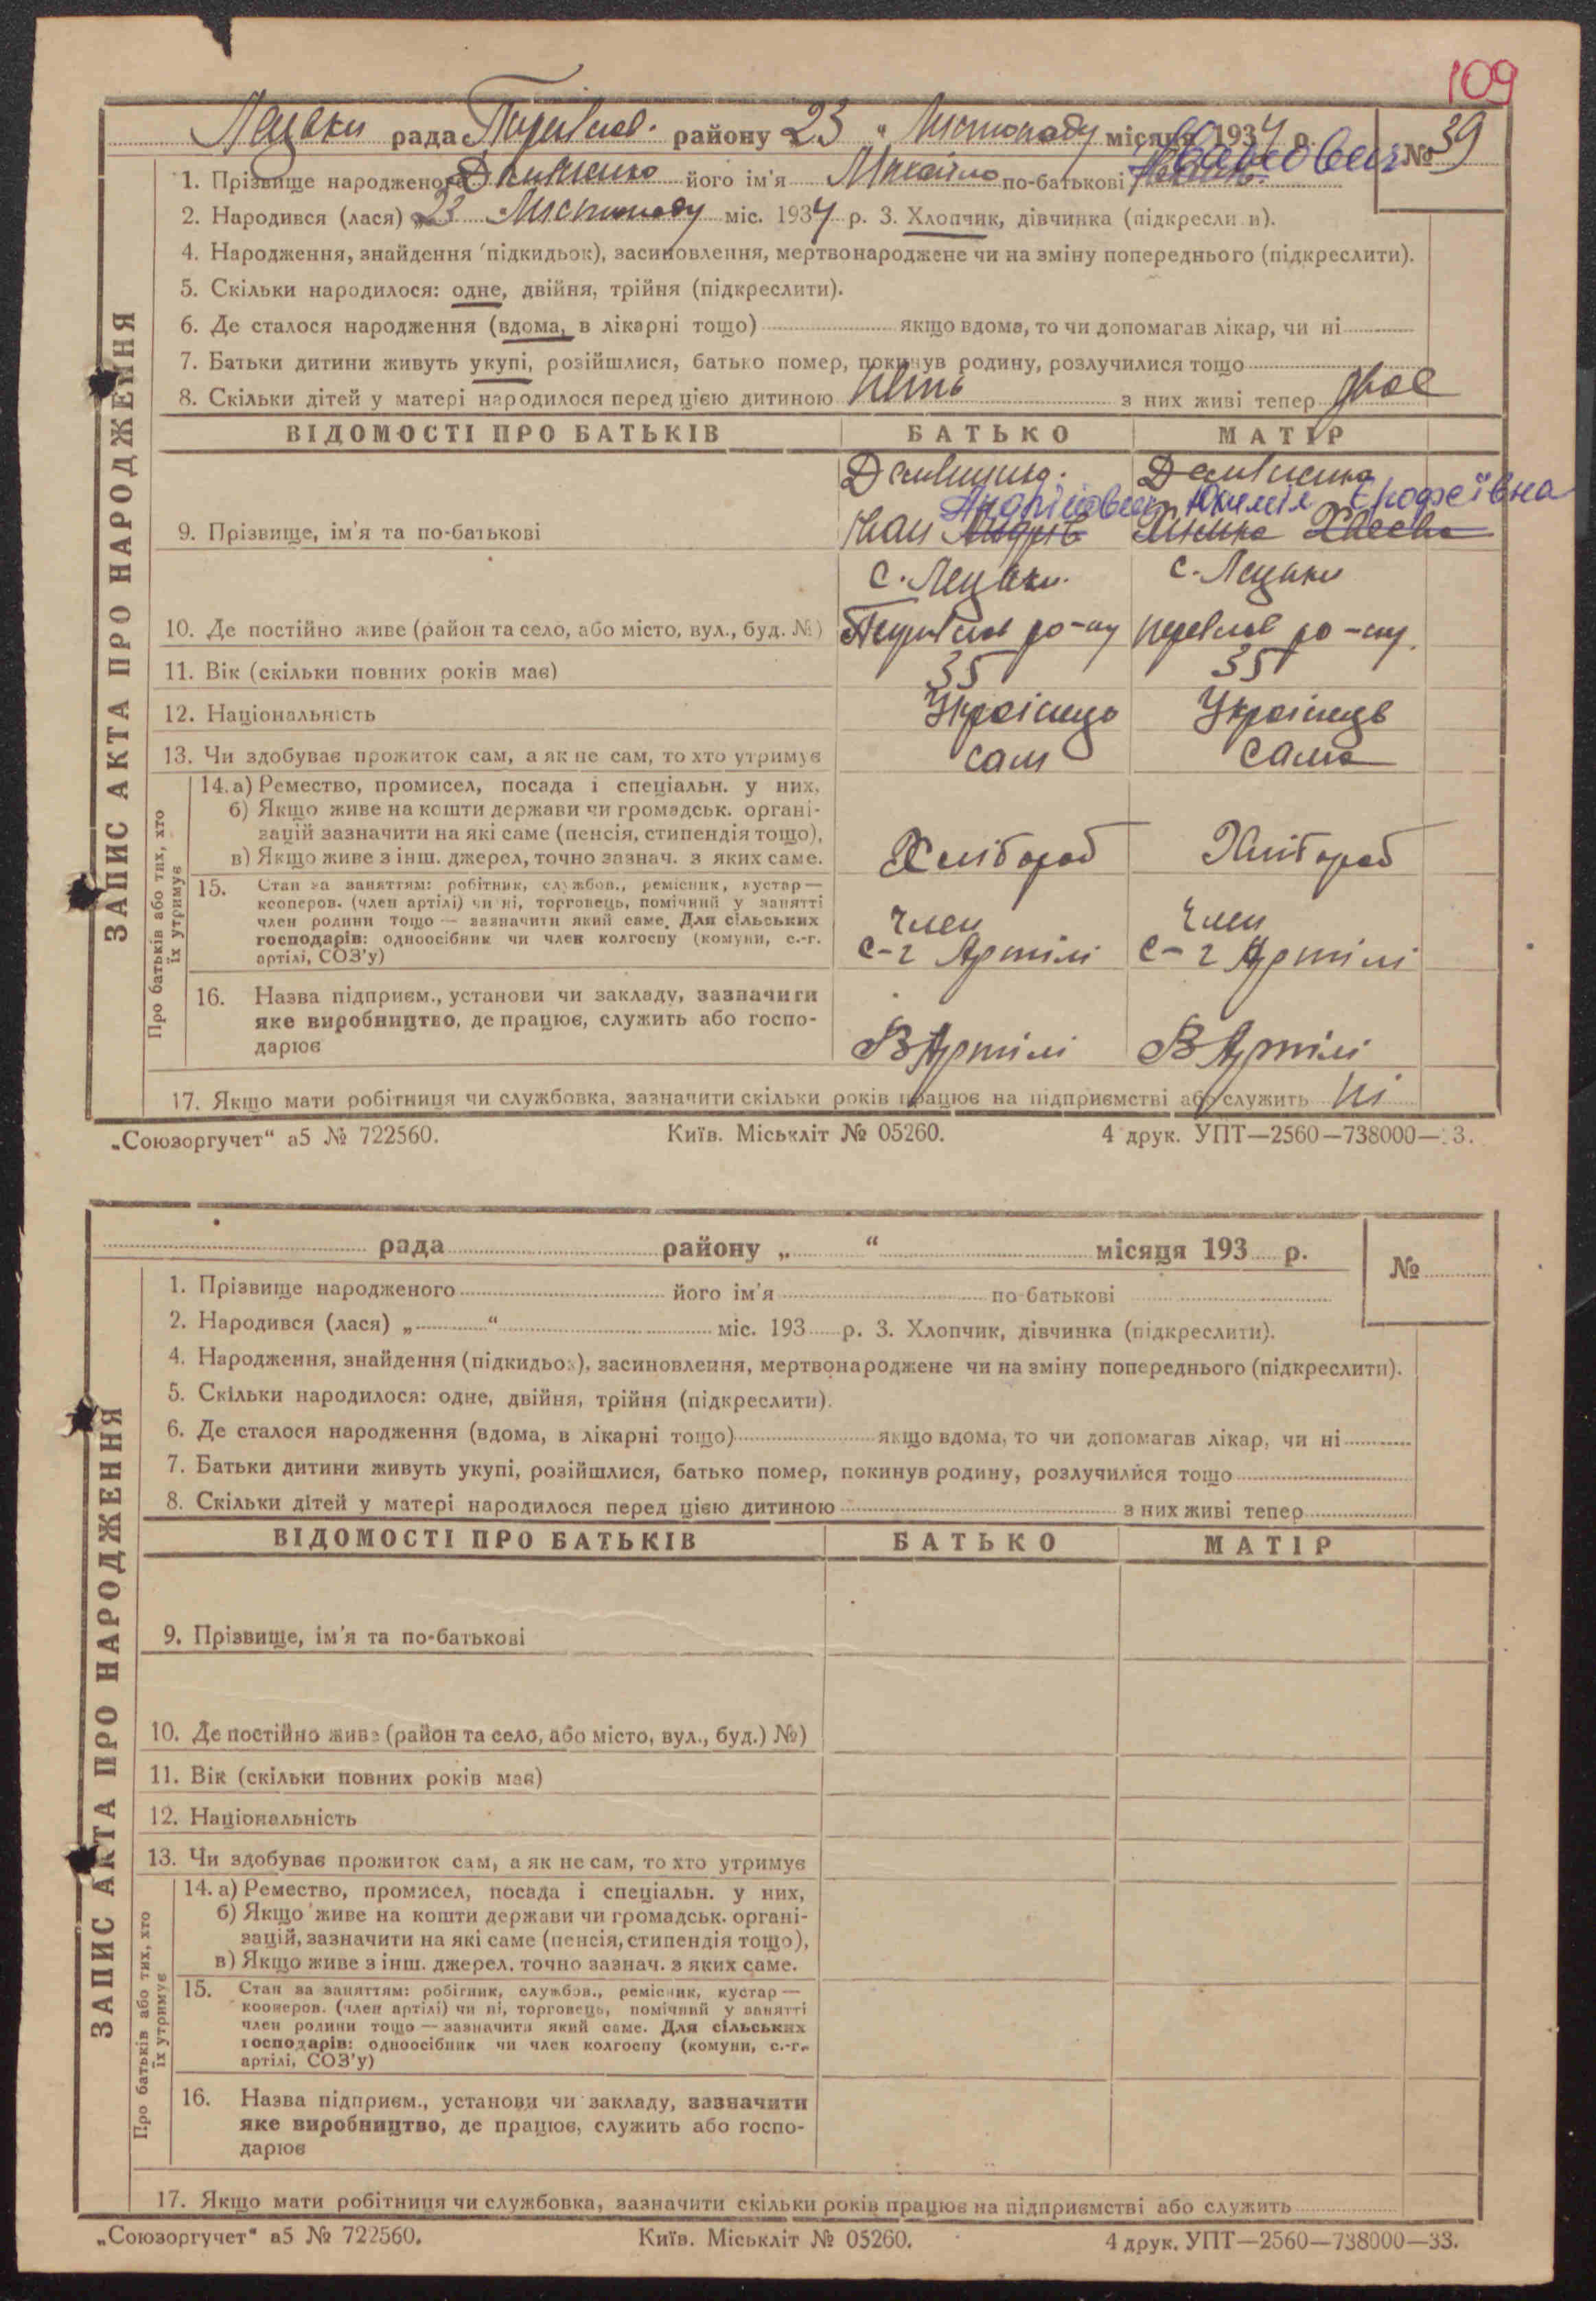 109
рада району 23 " Листопаду місяця 1934 р.
№ 39
1. Прізвище народженого його ім'я Михайло по-батькові Іванович
2. Народився (лася) „23 Листопаду міс. 1934 р. 3. Хлопчик, дівчинка (підкресли и).
4. Народження, знайдення 'підкидьок), засиновлення, мертвонароджене чи на зміну попереднього (підкреслити).
5. Скільки народилося: одне, двійня, трійня (підкреслити).
6. Де сталося народження (вдома, в лікарні тощо) якщо вдома, то чи допомагав лікар, чи ні
7. Батьки дитини живуть укупі, розійшлися, батько помер, покинув родину, розлучилися тощо
8. Скільки дітей у матері народилося перед цією дитиною з них живі тепер двоє
ЗАПИС АКТА ПРО НАРОДЖЕННЯ
ВІДОМОСТІ ПРО БАТЬКІВ БАТЬКО МАТІР
Андрійович Юхимія Єрофеївна
9. Прізвище, ім'я та по-батькові Іван Андрів
с. Лецьки с. Лецьки
10. Де постійно живе (район та село, або місто, вул., буд. №) ро-ну ро-ну
11. Вік (скільки повних років має) 35 35
12. Національність Українець Українець
13. Чи здобуває прожиток сам, а як не сам, то хто утримує сам сама
Про батьків або тих, хто їх утримує
14. а) Ремество, промисел, посада і спеціальн. у них,
б) Якщо живе на кошти держави чи громадськ. органі-
зацій зазначити на які саме (пенсія, стипендія тощо),
в) Якщо живе з інш. джерел, точно зазнач. з яких саме. Хлібороб Хлібороб
15. Стан за заняттям: робітник, службов., ремісник, кустар—
кооперов. (член артілі) чи ні, торговець, помічний у занятті
член родини тощо — зазначити який саме. Для сільських
господарів: одноосібник чи член колгоспу (комуни, с.-г.
артілі, СОЗ'у)
член член
с-г Артілі с-г Артілі
16. Назва підприєм., установи чи закладу, зазначити
яке виробництво, де працює, служить або госпо-
дарює В Артілі В Артілі
17. Якщо мати робітниця чи службовка, зазначити скільки років працює на підприємстві або служить Ні
„Союзоргучет“ а5 № 722560. Київ. Міськліт № 05260. 4 друк. УПТ—2560—738000—33.
рада району „ “ місяця 193 р.
№
1. Прізвище народженого його ім'я по-батькові
2. Народився (лася) „ “ міс. 193 р. 3. Хлопчик, дівчинка (підкреслити).
4. Народження, знайдення (підкидьок), засиновлення, мертвонароджене чи на зміну попереднього (підкреслити).
5. Скільки народилося: одне, двійня, трійня (підкреслити).
6. Де сталося народження (вдома, в лікарні тощо) якщо вдома, то чи допомагав лікар, чи ні
7. Батьки дитини живуть укупі, розійшлися, батько помер, покинув родину, розлучилися тощо
8. Скільки дітей у матері народилося перед цією дитиною з них живі тепер
ЗАПИС АКТА ПРО НАРОДЖЕННЯ
ВІДОМОСТІ ПРО БАТЬКІВ БАТЬКО МАТІР
9. Прізвище, ім'я та по-батькові
10. Де постійно живе (район та село, або місто, вул., буд.) №)
11. Вік (скільки повних років має)
12. Національність
13. Чи здобуває прожиток сам, а як не сам, то хто утримує
Про батьків або тих, хто їх утримує
14. а) Ремество, промисел, посада і спеціальн. у них,
б) Якщо живе на кошти держави чи громадськ. органі-
зацій, зазначити на які саме (пенсія, стипендія тощо),
в) Якщо живе з інш. джерел, точно зазнач. з яких саме.
15. Стан за заняттям: робітник, службов., ремісник, кустар—
кооперов. (член артілі) чи ні, торговець, помічний у занятті
член родини тощо — зазначити який саме. Для сільських
господарів: одноосібник чи член колгоспу (комуни, с.-г.
артілі, СОЗ'у)
16. Назва підприєм., установи чи закладу, зазначити
яке виробництво, де працює, служить або госпо-
дарює
17. Якщо мати робітниця чи службовка, зазначити скільки років працює на підприємстві або служить
„Союзоргучет“ а5 № 722560. Київ. Міськліт № 05260. 4 друк. УПТ—2560—738000—33.